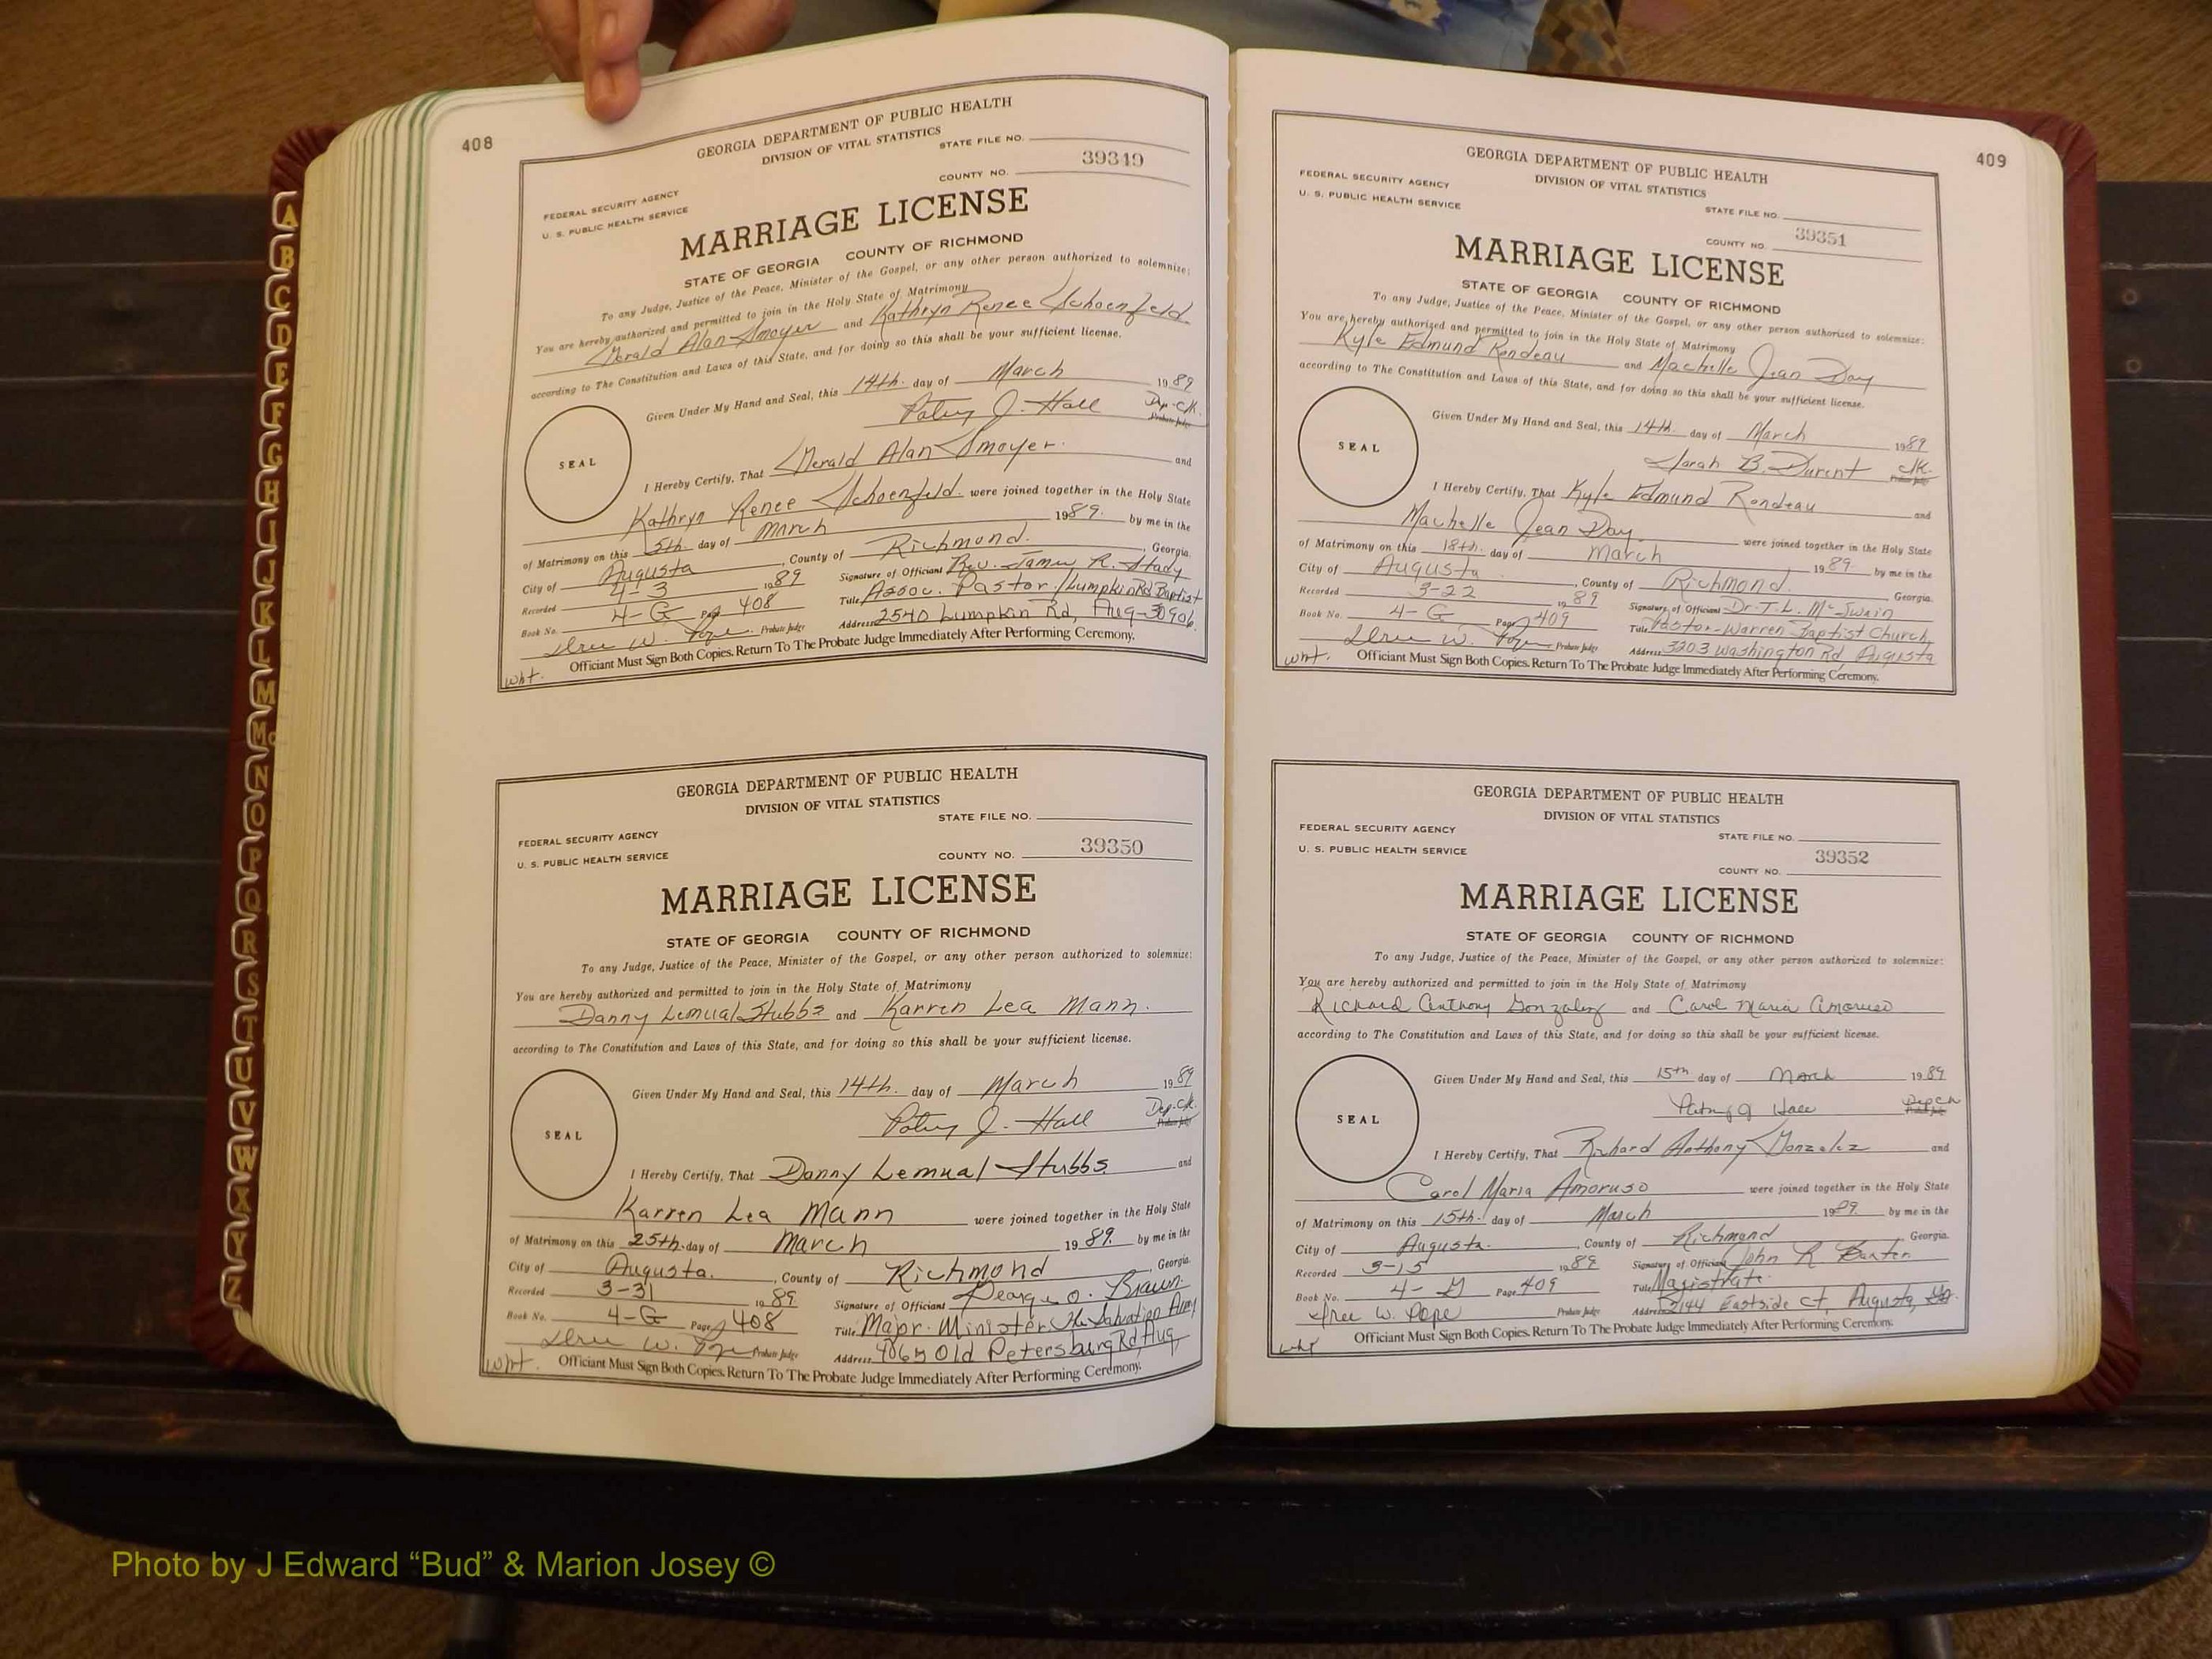 408
GEORGIA DEPARTMENT OF PUBLIC HEALTH
DIVISION OF VITAL STATISTICS
STATE FILE NO.
39349
COUNTY NO.
FEDERAL SECURITY AGENCY
U. S. PUBLIC HEALTH SERVICE
MARRIAGE LICENSE
STATE OF GEORGIA COUNTY OF RICHMOND
To any Judge, Justice of the Peace, Minister of the Gospel, or any other person authorized to solemnize:
You are hereby authorized and permitted to join in the Holy State of Matrimony
Gerald Alan Smoyer and Kathryn Renee Schoenfeld
according to The Constitution and Laws of this State, and for doing so this shall be your sufficient license.
Given Under My Hand and Seal, this 14th. day of March 1989
Patsy J. Hall Dep. Clk.
Probate Judge
SEAL
I Hereby Certify, That Gerald Alan Smoyer. and
Kathryn Renee Schoenfeld. were joined together in the Holy State
of Matrimony on this 5th. day of March 1989. by me in the
City of Augusta, County of Richmond. Georgia.
Recorded 4-3 1989 Signature of Officiant Rev. James R.
Book No. 4-G Page 408 Title Assoc. Pastor/Lumpkin Rd Baptist
Probate Judge Address 2540 Lumpkin Rd, Aug-30906.
Officiant Must Sign Both Copies. Return To The Probate Judge Immediately After Performing Ceremony.
wht.
GEORGIA DEPARTMENT OF PUBLIC HEALTH
DIVISION OF VITAL STATISTICS
STATE FILE NO.
FEDERAL SECURITY AGENCY
U. S. PUBLIC HEALTH SERVICE
COUNTY NO. 39350
MARRIAGE LICENSE
STATE OF GEORGIA COUNTY OF RICHMOND
To any Judge, Justice of the Peace, Minister of the Gospel, or any other person authorized to solemnize:
You are hereby authorized and permitted to join in the Holy State of Matrimony
Danny Lemual Stubbs and Karren Lea Mann.
according to The Constitution and Laws of this State, and for doing so this shall be your sufficient license.
Given Under My Hand and Seal, this 14th. day of March 1989
Patsy J. Hall Dep. Clk.
Probate Judge
SEAL
I Hereby Certify, That Danny Lemual Stubbs and
Karren Lea Mann were joined together in the Holy State
of Matrimony on this 25th. day of March 1989. by me in the
City of Augusta. , County of Richmond Georgia.
Recorded 3-31 1989 Signature of Officiant George O. Brawn
Book No. 4-G Page 408 Title Major. Minister The Salvation Army
Probate Judge Address Old Petersburg Rd, Aug,
Officiant Must Sign Both Copies. Return To The Probate Judge Immediately After Performing Ceremony.
wht.
409
GEORGIA DEPARTMENT OF PUBLIC HEALTH
DIVISION OF VITAL STATISTICS
FEDERAL SECURITY AGENCY
U. S. PUBLIC HEALTH SERVICE
STATE FILE NO.
39351
COUNTY NO.
MARRIAGE LICENSE
STATE OF GEORGIA COUNTY OF RICHMOND
To any Judge, Justice of the Peace, Minister of the Gospel, or any other person authorized to solemnize:
You are hereby authorized and permitted to join in the Holy State of Matrimony
Kyle Edmund Rondeau and Machelle Jean Day
according to The Constitution and Laws of this State, and for doing so this shall be your sufficient license.
Given Under My Hand and Seal, this 14th. day of March 1989
Sarah B. Durent Clk.
Probate Judge
SEAL
I Hereby Certify, That Kyle Edmund Rondeau and
Machelle Jean Day. were joined together in the Holy State
of Matrimony on this 18th. day of March 1989 by me in the
City of Augusta , County of Richmond. Georgia.
Recorded 3-22 1989 Signature of Officiant Dr. T. L. McSwain
Book No. 4-G Page 409 Title Pastor-Warren Baptist Church
Probate Judge Address 3203 Washington Rd, Augusta
Officiant Must Sign Both Copies. Return To The Probate Judge Immediately After Performing Ceremony.
wht.
GEORGIA DEPARTMENT OF PUBLIC HEALTH
DIVISION OF VITAL STATISTICS
FEDERAL SECURITY AGENCY
STATE FILE NO.
U. S. PUBLIC HEALTH SERVICE
39352
COUNTY NO.
MARRIAGE LICENSE
STATE OF GEORGIA COUNTY OF RICHMOND
To any Judge, Justice of the Peace, Minister of the Gospel, or any other person authorized to solemnize:
You are hereby authorized and permitted to join in the Holy State of Matrimony
Richard Anthony Gonzalez and Carol Maria Amoruso
according to The Constitution and Laws of this State, and for doing so this shall be your sufficient license.
Given Under My Hand and Seal, this 15th day of March 1989
Patsy J Hall Dep Clk
Probate Judge
SEAL
I Hereby Certify, That Richard Anthony Gonzalez and
Carol Maria Amoruso were joined together in the Holy State
of Matrimony on this 15th. day of March 1989. by me in the
City of Augusta. , County of Richmond Georgia.
Recorded 3-15 1989 Signature of Officiant John R Baxter
Book No. 4-G Page 409 Title Magistrate.
W. Pope Probate Judge Address 2144 Eastside Ct, Augusta, Ga.
Officiant Must Sign Both Copies. Return To The Probate Judge Immediately After Performing Ceremony.
wht
A
B
C
D
E
F
G
H
I
J
K
L
M
Mc
N
O
P
Q
R
S
T
U
V
W
X
Y
Z
Photo by J Edward “Bud” & Marion Josey ©